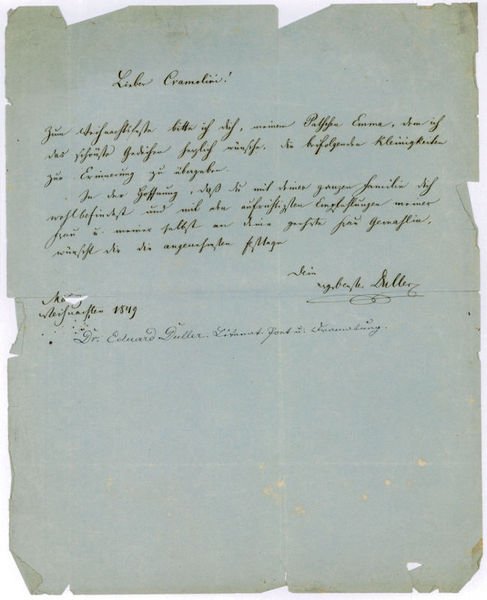 Lieber Cramolini!
Zum Weihnachtsfeste bitte ich dich, meinem Pathchen Emma, dem ich
das schönste Gedeihen herzlich wünsche, die beifolgenden Kleinigkeiten
zur Erinnerung zu übergeben.
In der Hoffnung, daß du mit deiner ganzen Familie dich
wohlbefindest und mit den aufrichtigsten Empfehlungen meiner
Frau u. meiner selbst an deine geehrte Frau Gemahlin,
wünscht dir die angenehmsten Festtage
Dein
ergebenster Duller
Mainz
Weihnachten 1849
Dr. Eduard Duller. Literat. Poet u. Dramaturg.